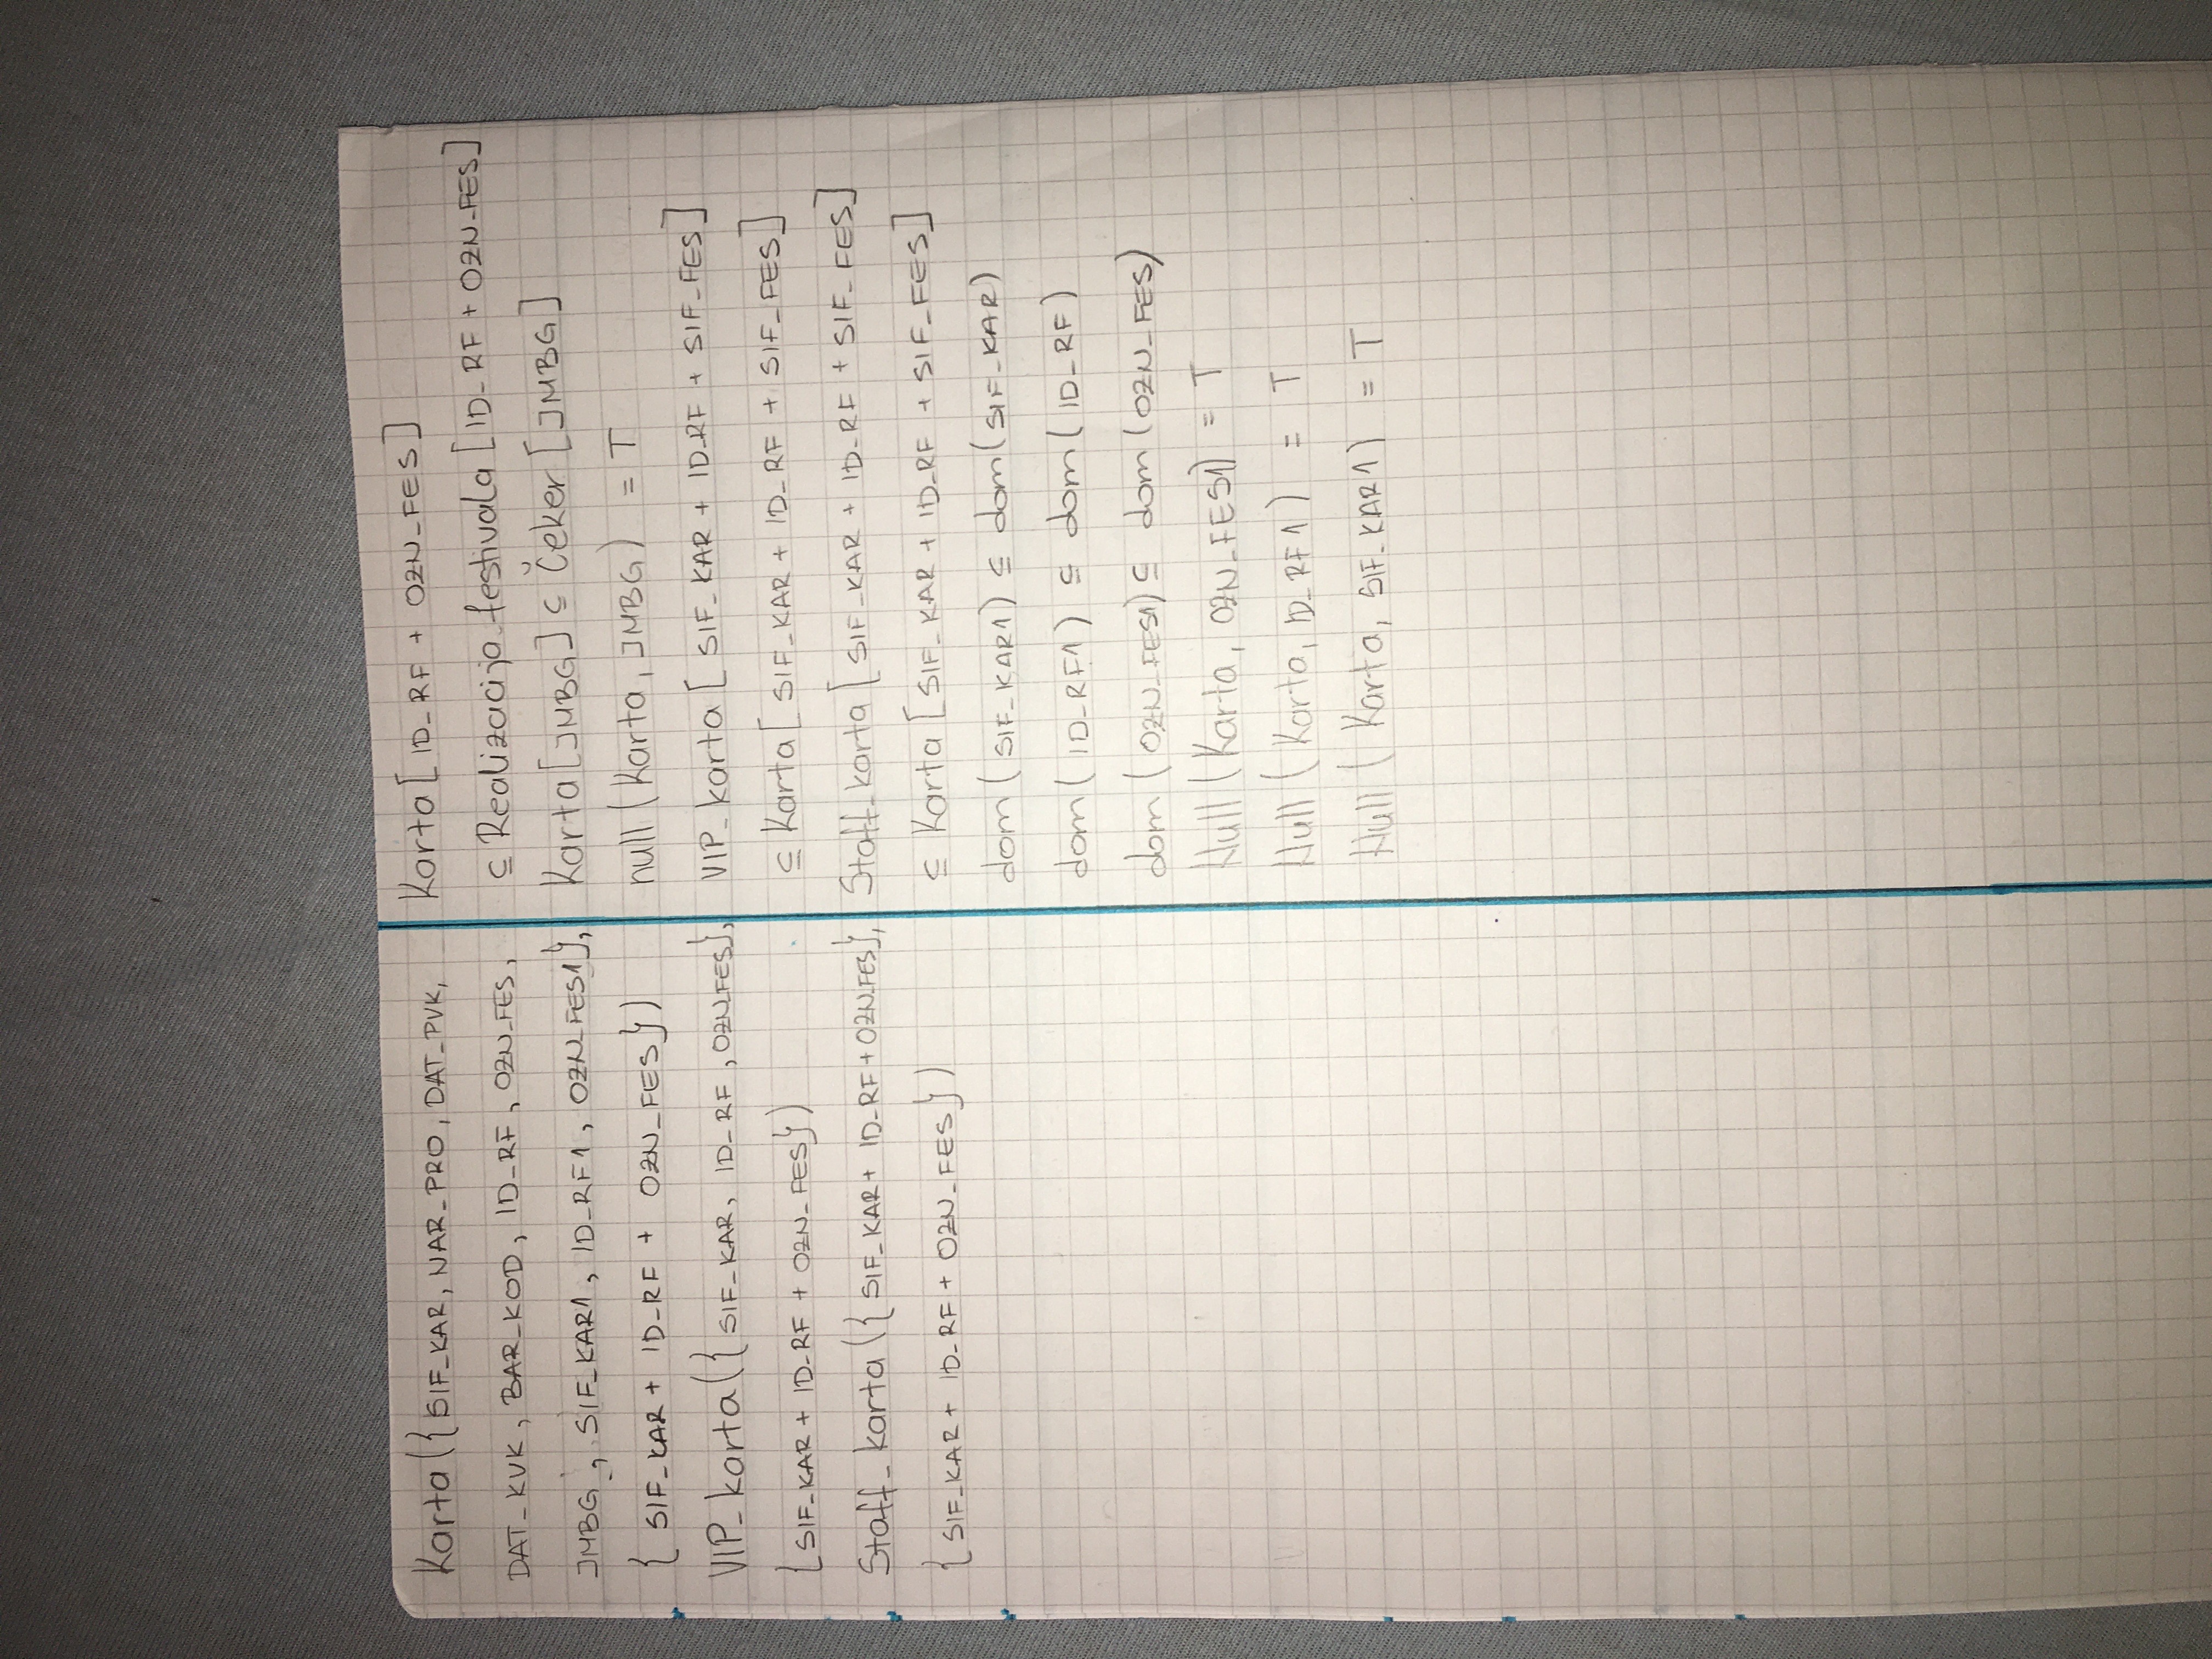 Karta ({SIF_KAR, NAR_PRO, DAT_PVK,
DAT_KVK, BAR_KOD, ID_RF, OZN_FES,
JMBG, SIF_KAR1, ID_RF1, OZN_FES1},
{ SIF_KAR + ID_RF + OZN_FES})
VIP_karta({SIF_KAR, ID_RF, OZN_FES},
{SIF_KAR + ID_RF + OZN_FES})
Staff_karta ({SIF_KAR + ID_RF + OZN_FES},
{SIF_KAR + ID_RF + OZN_FES})
Karta [ID_RF + OZN_FES]
⊆ Realizacija_festivala [ID_RF + OZN_FES]
Karta [JMBG] ⊆ Čeker [JMBG]
null (Karta, JMBG) = T
VIP_karta [SIF_KAR + ID_RF + SIF_FES]
⊆ Karta [SIF_KAR + ID_RF + SIF_FES]
Staff_karta [SIF_KAR + ID_RF + SIF_FES]
⊆ Karta [SIF_KAR + ID_RF + SIF_FES]
dom (SIF_KAR1) ⊆ dom (SIF_KAR)
dom (ID_RF1) ⊆ dom (ID_RF)
dom (OZN_FES1) ⊆ dom (OZN_FES)
Null (Karta, OZN_FES1) = T
Null (Karta, ID_RF1) = T
Null (Karta, SIF_KAR1) = T